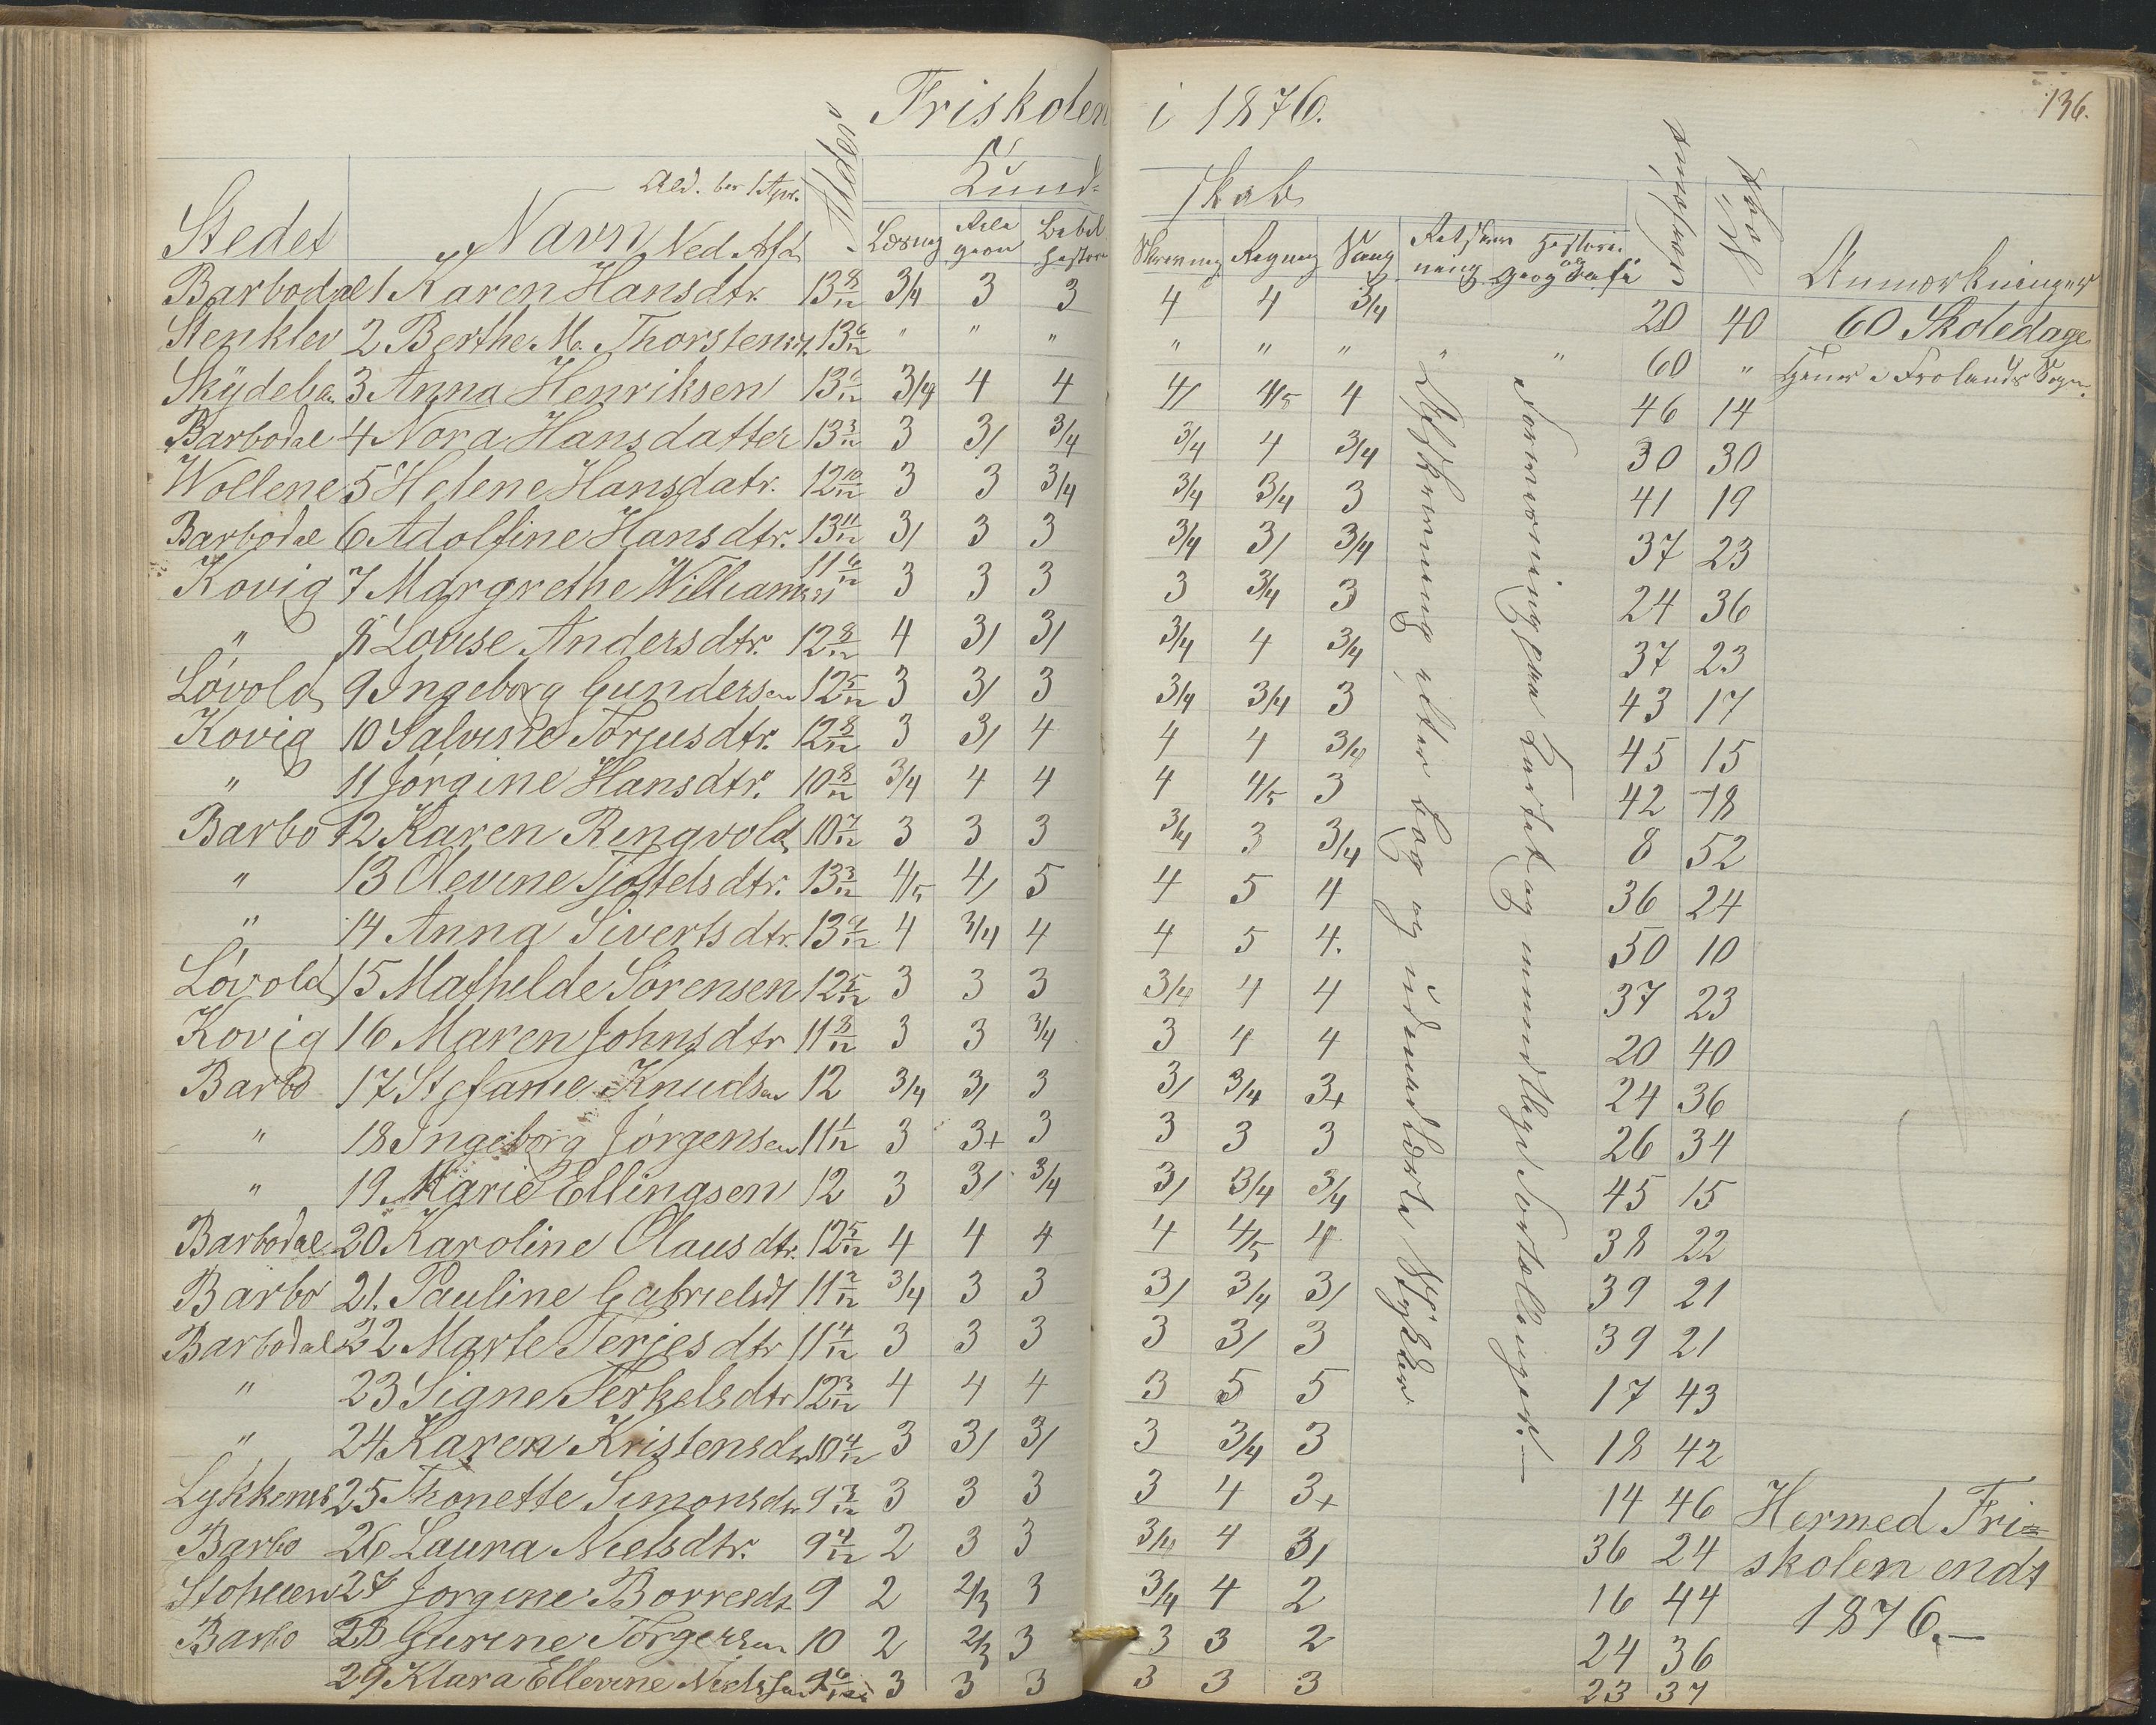 Friskolen i 1876.
136.
Stedet Navn Ned. Afd. Ald. ber 1 Apr. Alder Kund- skab forsømt Mødt Anmærkninger
Læsning Reli gion Bibel historie Skrivning Regning Sang Retskriv ning Historie og Geografi
Barbodal 1 Karen Hansdtr. 13 8/12 3/4 3 3 4 4 3/4 20 40 60 Skoledage
Stenklev 2 Berthe M. Thorstensdt. 13 6/12 " " " " " " " " 60 " Tjener i Frolands Sogn.
Skÿdeb. 3 Anna Henriksen 13 3/4 4 4 4/ 4/5 4 46 14
Barbodal 4 Nora Hansdatter 13 3/12 3 3/ 3/4 3/4 4 3/4 30 30
Wollene 5 Helene Hansdatr. 12 10/12 3 3 3/4 3/4 3/4 3 41 19
Barbodal 6 Adolfine Hansdtr. 13 11/12 3/ 3 3 3/4 3/ 3/4 37 23
Kovig 7 Margrethe Williams 11 6/12 3 3 3 3 3/4 3 24 36
" 8 Louise Andersdtr. 12 8/12 4 3/ 3/ 3/4 4 3/4 37 23
Lövold 9 Ingeborg Gundersen 12 5/12 3 3/ 3 3/4 3/4 3 43 17
Kovig 10 Salvine Torjusdtr. 12 8/12 3 3/ 4 4 4 3/4 45 15
" 11 Jörgine Hansdtr. 10 8/12 3/4 4 4 4 4/5 3 42 18
Barbo 12 Karen Ringvold 10 7/12 3 3 3 3/4 3 3/4 8 52
" 13 Olevine Tjostelsdtr. 13 3/12 4/5 4/ 5 4 5 4 36 24
" 14 Anna Sivertsdtr. 13 4 3/4 4 4 5 4. 50 10
Lövold 15 Mathilde Sörensen 12 5/12 3 3 3 3/4 4 4 37 23
Kovig 16 Maren Johnsdtr 11 3/12 3 3 3/4 3 4 4 20 40
Barbo 17 Stefanie Knudsen 12 3/4 3/ 3 3/ 3/4 3+ 24 36
" 18 Ingeborg Jörgensen 11 1/12 3 3+ 3 3 3 3 26 34
" 19. Marie Ellingsen 12 3 3/ 3/4 3/ 3/4 3/4 45 15
Barbodal 20 Karoline Olausdtr. 12 5/12 4 4 4 4 4/5 4 38 22
Barbo 21. Pauline Gabrielsdt 11 2/12 3/4 3 3 3/ 3/4 3/ 39 21
Barbodal 22 Marte Terjesdtr 11 4/12 3 3 3 3 3/ 3 39 21
" 23 Signe Terkelsdtr 12 3/12 4 4 4 3 5 5 17 43
" 24 Karen Kristensdtr 10 4/12 3 3/ 3/ 3 3/4 3 18 42
25 Thonette Simonsdtr 9 3/12 3 3 3 3 4 3+ 14 46
Barbo 26 Laura Nielsdtr. 9 4/12 2 3 3 3/4 4 3/ 36 24
27 Jorgine Borresdt 9 2 2/3 3 3/4 4 2 16 44
Barbo 28 Gurine Torgersen 10 2 2/3 3 3 3 2 24 36
29 Klara Ellevine Nielsen 9 6/12 3 3 3 3 3 3 23 37
Retskrivning efter Bog og udenadlærte Stykker
Forevisning paa Kartet og mundtlige Fortællinger.—
Hermed Fri=
skolen endt
1876.—